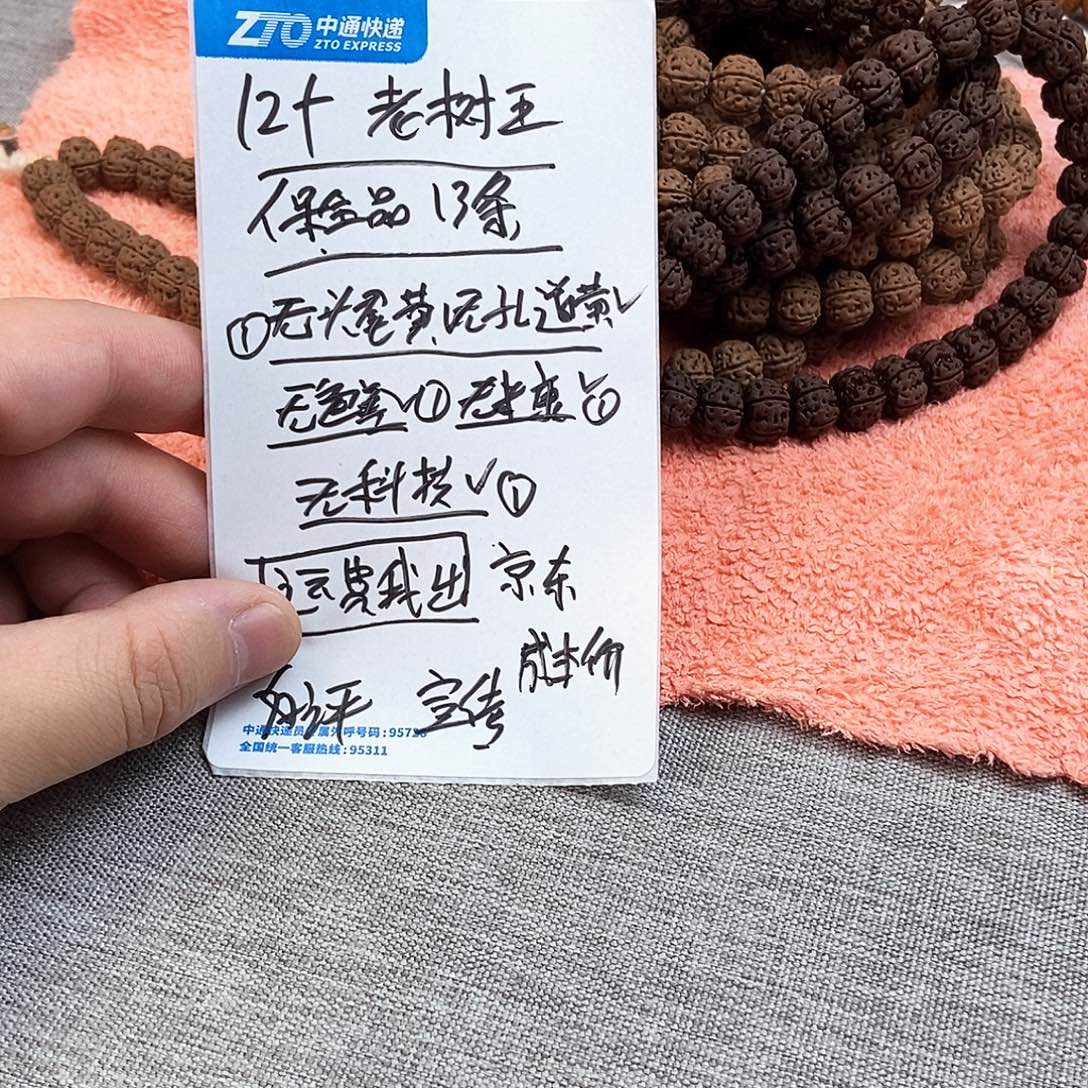 ZTO 中通快递
ZTO EXPRESS
12+ 老树王
保全品 13条
①无头尾黄 无孔道黄✓
无色差✓① 无半变✓①
无科技✓①
运费我出 京东
成本价
好评 宣传
中通快递员 属外呼号码:9573
全国统一客服热线:95311